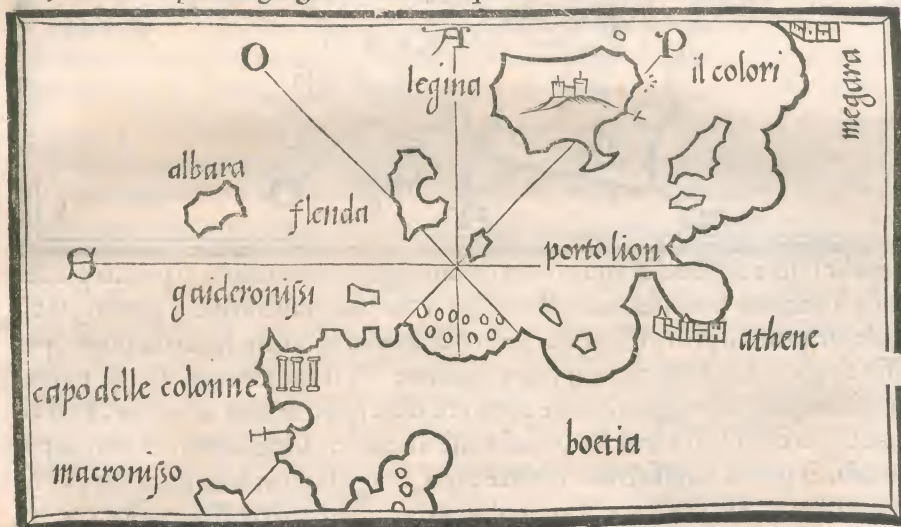 O
A
P
legina
il colori
megara
albara
flenda
S
porto lion
gaideroniſsi
athene
capo delle colonne
boetia
macroniſso